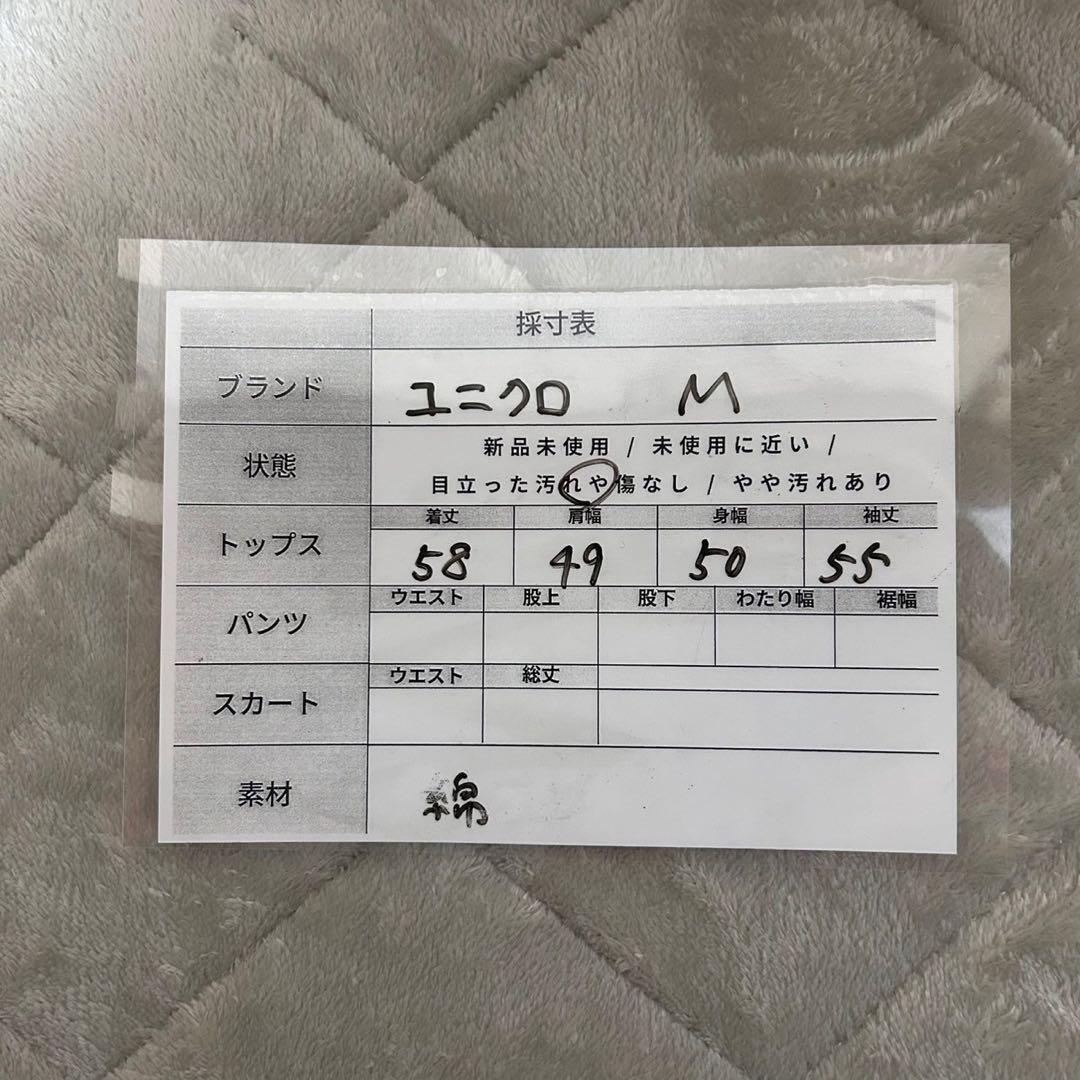 採寸表
ブランド ユニクロ M
状態 新品未使用 / 未使用に近い /
目立った汚れや傷なし / やや汚れあり
トップス 着丈 肩幅 身幅 袖丈
58 49 50 55
パンツ ウエスト 股上 股下 わたり幅 裾幅
スカート ウエスト 総丈
素材 綿